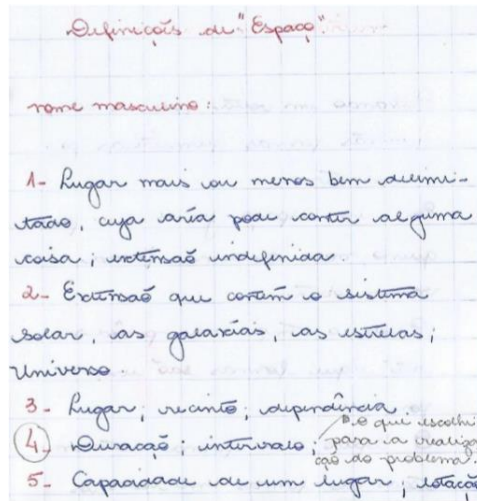 Definições de "Espaço".
nome masculino:
1- Lugar mais ou menos bem delimi-
tado, cuja aría pode conter alguma
coisa; extensão indefinida.
2- Extensão que contém o sistema
solar, as galaxias, as estrelas;
Universo.
3- Lugar; recinto; dependência.
o que escolhi
4- Duração; intervalo; para a realiza
ção do problema.
5- Capacidade de um lugar; lotação